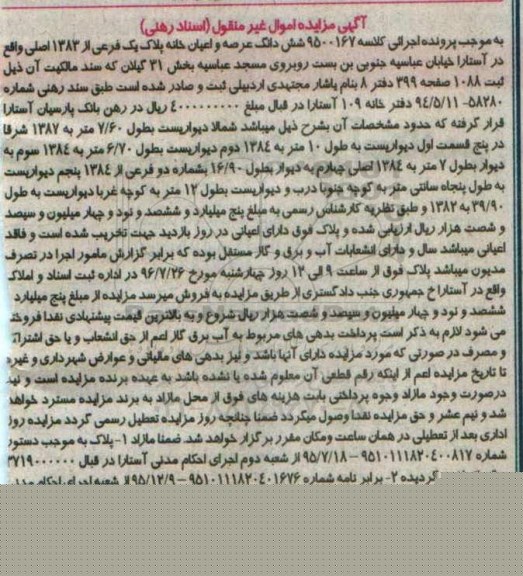 آگهی مزایده اموال غیر منقول (اسناد رهنی)
به موجب پرونده اجرائی کلاسه ۹۵۰۰۱۶۷ شش دانگ عرصه و اعیان خانه پلاک یک فرعی از ۱۳۸۳ اصلی واقع
در آستارا خیابان عباسیه جنوبی بن بست روبروی مسجد عباسیه بخش ۳۱ گیلان که سند مالکیت آن ذیل
ثبت ۱۰۸۸ صفحه ۳۹۹ دفتر ۸ بنام یاشار مجتهدی اردبیلی ثبت و صادر شده است طبق سند رهنی شماره
۵۸۲۸۰-۹۴/۵/۱۱ دفتر خانه ۱۰۹ آستارا در قبال مبلغ ۴۰۰۰۰۰۰۰۰۰ ریال در رهن بانک پارسیان آستارا
قرار گرفته که حدود مشخصات آن بشرح ذیل میباشد شمالا دیواریست بطول ۷/۶۰ متر به ۱۳۸۷ شرقا
در پنج قسمت اول دیواریست به طول ۱۰ متر به ۱۳۸۴ دوم دیواریست بطول ۶/۷۰ متر به ۱۳۸۴ سوم به
دیوار بطول ۷ متر به ۱۳۸۴ اصلی چهارم به دیوار بطول ۱۶/۹۰ بشماره دو فرعی از ۱۳۸۴ پنجم دیواریست
به طول پنجاه سانتی متر به کوچه جنوبا درب و دیواریست بطول ۱۲ متر به کوچه غربا دیواریست به طول
۳۹/۹۰ به ۱۳۸۲ و طبق نظریه کارشناس رسمی به مبلغ پنج میلیارد و ششصد و نود و چهار میلیون و سیصد
و شصت هزار ریال ارزیابی شده و پلاک فوق دارای اعیانی در روز بازدید جهت تخریب شده است و فاقد
اعیانی میباشد سال و دارای انشعابات آب و برق و گاز مستقل بوده که برابر گزارش مامور اجرا در تصرف
مدیون میباشد پلاک فوق از ساعت ۹ الی ۱۲ روز چهارشنبه مورخ ۹۶/۷/۲۶ در اداره ثبت اسناد و املاک
واقع در آستارا خ جمهوری جنب دادگستری از طریق مزایده به فروش میرسد مزایده از مبلغ پنج میلیارد
ششصد و نود و چهار میلیون و سیصد و شصت هزار ریال شروع و به بالاترین قیمت پیشنهادی نقدا فروخته
می شود لازم به ذکر است پرداخت بدهی های مربوط به آب برق گاز اعم از حق انشعاب و یا حق اشتراک
و مصرف در صورتی که مورد مزایده دارای آنها باشد و نیز بدهی های مالیاتی و عوارض شهرداری و غیره
تا تاریخ مزایده اعم از اینکه رقم قطعی آن معلوم شده یا نشده باشد به عهده برنده مزایده است و نیز
درصورت وجود مازاد وجوه پرداختی بابت هزینه های فوق از محل مازاد به برنده مزایده مسترد خواهد
شد و نیم عشر و حق مزایده نقدا وصول میگردد ضمنا چنانچه روز مزایده تعطیل رسمی گردد مزایده روز
اداری بعد از تعطیلی در همان ساعت ومکان مقرر برگزار خواهد شد. ضمنا مازاد ۱- پلاک به موجب دستور
شماره ۹۵۱۰۱۱۱۸۲۰۴۰۰۸۱۷ – ۹۵/۷/۱۸ از شعبه دوم اجرای احکام مدنی آستارا در قبال ۳۷۱۹۰۰۰۰۰۰
گردیده ۲- برابر نامه شماره ۹۵۱۰۱۱۱۸۲۰۴۰۱۶۷۶ – ۹۵/۱۲/۹ از شعبه اجرای احکام